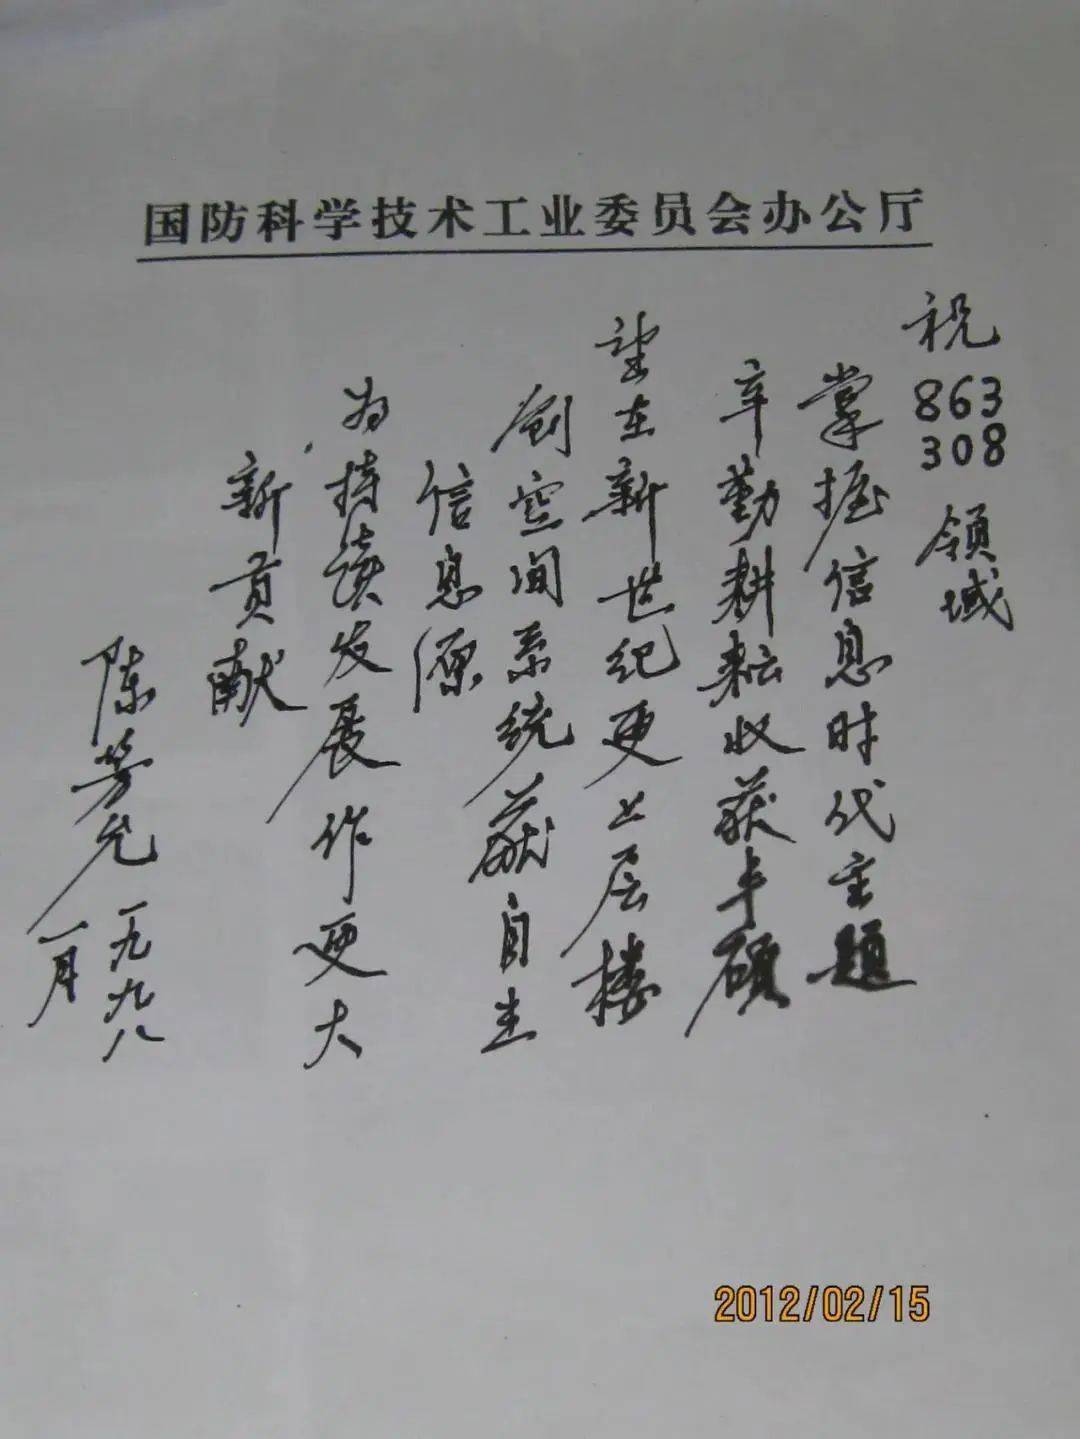 国防科学技术工业委员会办公厅
祝863 308领域
掌握信息时代主题
辛勤耕耘收获丰硕
望在新世纪更上层楼
创空间系统获自主
信息源
为持续发展作更大
新贡献
陈芳允
一九九八
一月
2012/02/15